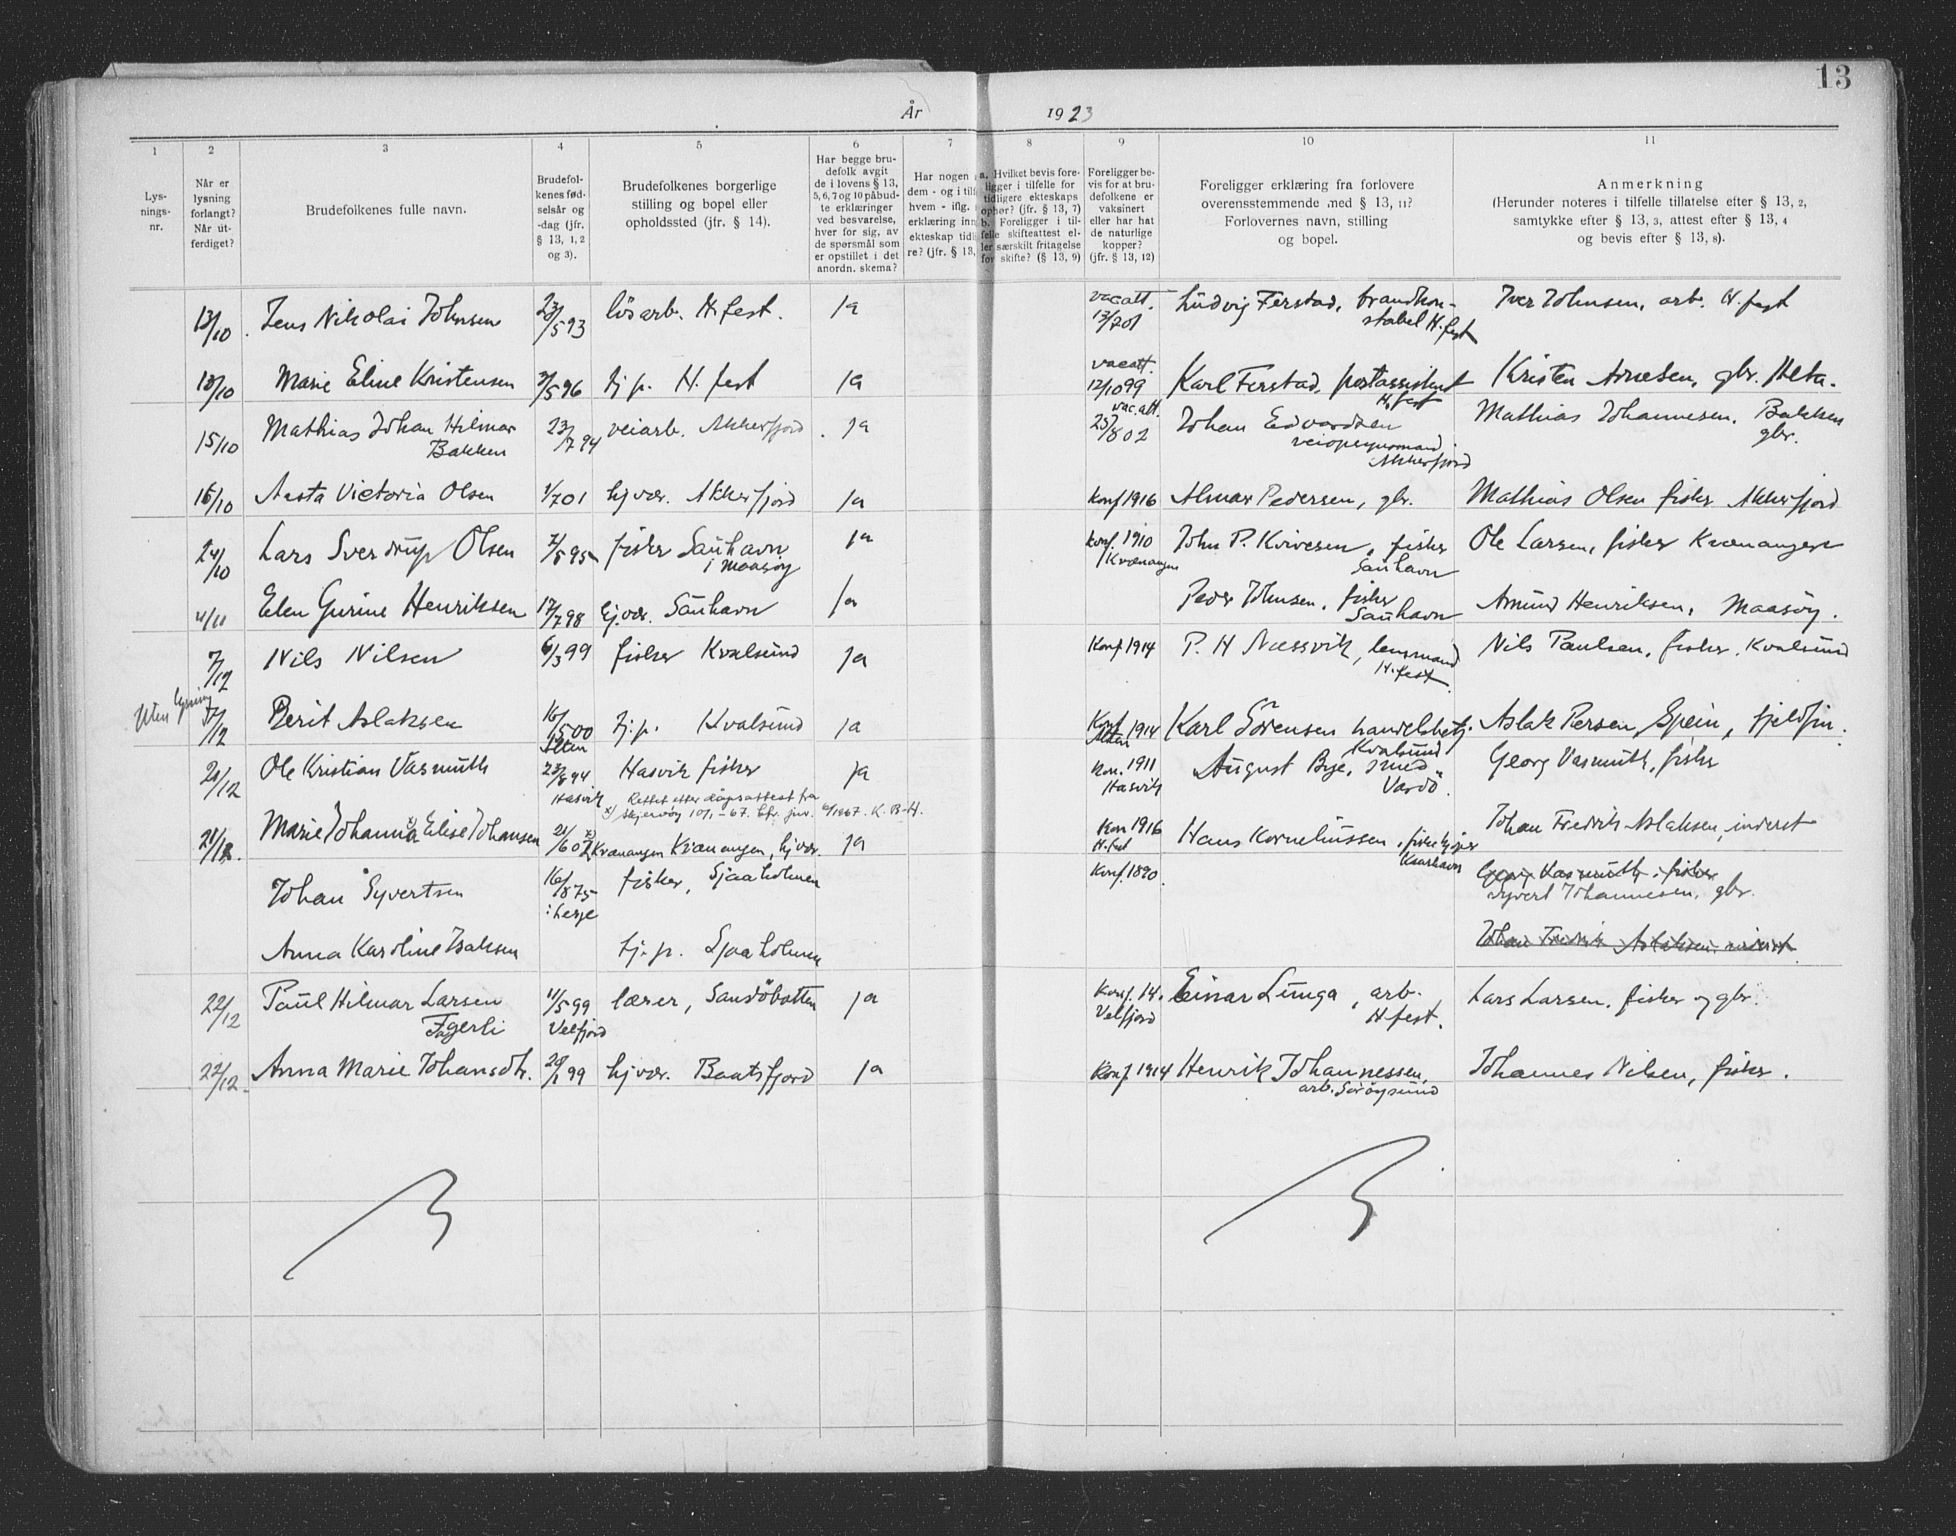 13
År 1923
1 2 3 4 5 6 7 8 9 10 11
Lysnings-nr.
Når er lysning forlangt? Når utferdiget?
Brudefolkenes fulle navn.
Brudefolkenes fødselsår og -dag (jfr. § 13, 1, 2 og 3).
Brudefolkenes borgerlige stilling og bopel eller opholdssted (jfr. § 14).
Har begge brudefolk avgit de i lovens § 13, 5, 6, 7 og 10 påbudte erklæringer ved besvarelse, hver for sig, av de spørsmål som er opstillet i det anordn. skema?
Har nogen a
dem - og i tilf
hvem - iflg.
erklæring inn
ekteskap tid
re? (jfr. § 13,
a. Hvilket bevis foreligger i tilfelle for tidligere ekteskaps ophør? (jfr. § 13, 7)
b. Foreligger i tilfelle skifteattest eller særskilt fritagelse for skifte? (§ 13, 9)
Foreligger bevis for at brudefolkene er vaksinert eller har hat de naturlige kopper? (jfr. § 13, 12)
Foreligger erklæring fra forlovere overensstemmende med § 13, 11? Forlovernes navn, stilling og bopel.
Anmerkning
(Herunder noteres i tilfelle tillatelse efter § 13, 2, samtykke efter § 13, 3, attest efter § 13, 4 og bevis efter § 13, 8).
13/10. Jens Nikolai Johnsen 23/5 93 løsarb. H.fest. ja vac att. 17/7 01 Ludvig Ferstad, brandkonstabel H.fest Iver Johnsen, arb. H.fest
13/10 Marie Eline Kristensen 3/5 96 tj.p. H.fest ja vac att. 12/10 99 Karl Ferstad, postassistent H.fest Kristen Arnesen, gbr.
15/10 Mathias Johan Hilmar Bakken 23/7 94 veiarb. Akkerfjord. ja vac. att. 25/8 02 Johan Edvardsen Akkerfjord Mathias Johannesen, Bakken gbr.
16/10 Aasta Victoria Olsen 1/7 01 hj.vær. Akkerfjord ja Konf 1916 Almar Pedersen, gbr. Mathias Olsen fisker Akkerfjord
24/10 Lars Sverdrup Olsen 2/8 95 fisker Sauhavn i Maasøy ja Konf. 1910 Kvænangen John P. Kvivesen, fisker Sauhavn Ole Larsen, fisker Kvænangen
4/11 Elen Gurine Henriksen 17/7 98 hj.vær. Sauhavn ja Peder Johnsen, fisker Sauhavn Amund Henriksen, Maasøy.
7/12 Nils Nilsen 6/3 99 fisker Kvalsund ja Konf 1914 P. H Næssvik, lensmand H.fest. Nils Paulsen, fisker, Kvalsund
Uten lysning 7/12 Berit Aslaksen 16/5 00 Alten tj.p. Kvalsund ja Konf 1914 Alten Karl Sørensen handelsbetj. Kvalsund Aslak Persen, Spein, fjeldfin.
21/12 Ole Kristian Vasmuth 23/8 94 Hasvik Hasvik fisker ja Kon. 1911 Hasvik August Bye, smed Vardø. Georg Vasmuth, fisker
x) Rettet efter dåpsattest fra Skjervøy 10/1-67. K. B-H.
21/12 Marie Johanna x) Elise Johansen 21/6 02 Kvænangen Kvænangen, hj.vær. ja Kon 1916 H.fest Hans Korneliussen, fiskekjøper Kvarhavn Johan Fredrik Aslaksen, inderst
Johan Syvertsen 16/8 75 i Lesje fisker, Sjaaholmen Konf. 1890. Georg Vasmuth, fisker
Syvert Johannesen, gbr.
Anna Karoline Isaksen tj.p. Sjaaholmen Johan Fredrik Aslaksen, inderst.
22/12 Paul Hilmar Larsen Fagerli 11/5 99 Velfjord lærer, Sandøbotten ja Konf. 14. Velfjord Einar Lunga, arb. H.fest. Lars Larsen, fisker og gbr.
22/12. Anna Marie Johansdtr. 28/1 99 hj.vær. Baatsfjord ja Konf. 1914 Henrik Johannessen, arb. Sørøysund Johannes Nilsen, fisker.